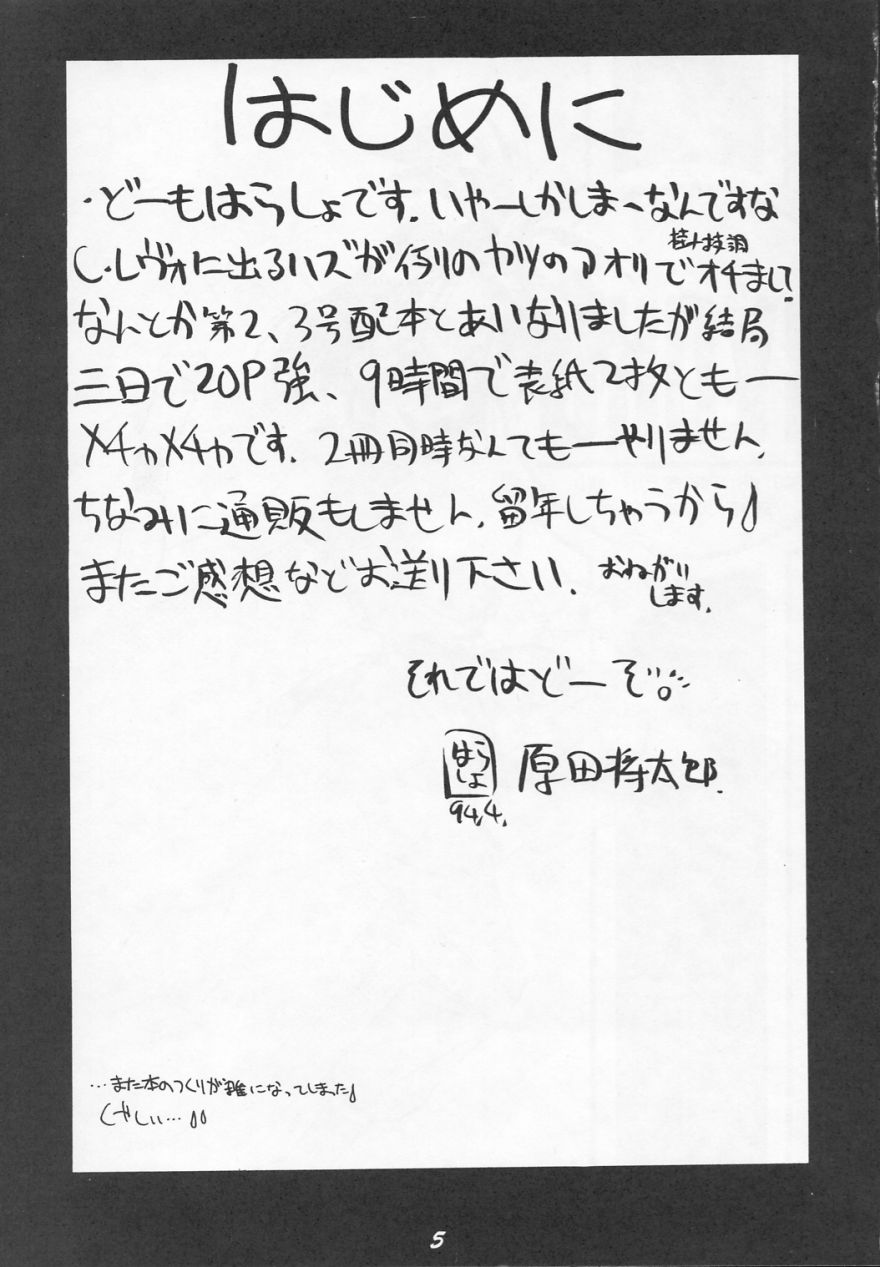 はじめに
・どーもはらしょです.いやーしかしまーなんですな
C・レヴォに出るハズが例のヤツのアオリでオチまして.
なんとか第2、3号配本とあいなりましたが結局
三日で20P強、9時間で表紙2枚ともー
メチャメチャです.2冊同時なんてもーやりません.
ちなみに通販もしません.留年しちゃうから♪
またご感想などお送り下さい.おねがい
します.
それではどーぞ
はらしょ 原田将太郎.
94,4.
…また本のつくりが雑になってしまった♪
くやしい…♪♪
5